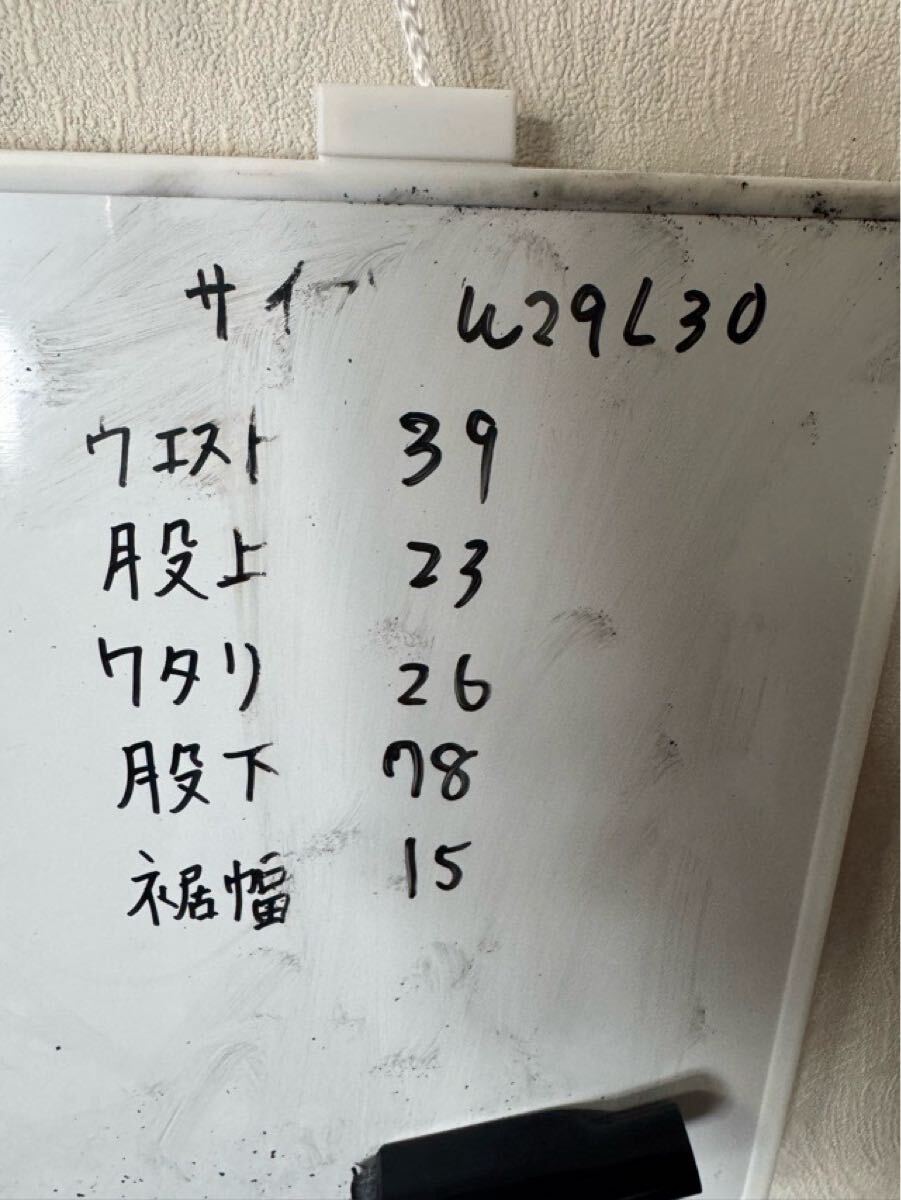 サイズ W29L30
ウエスト 39
股上 23
ワタリ 26
股下 78
裾幅 15